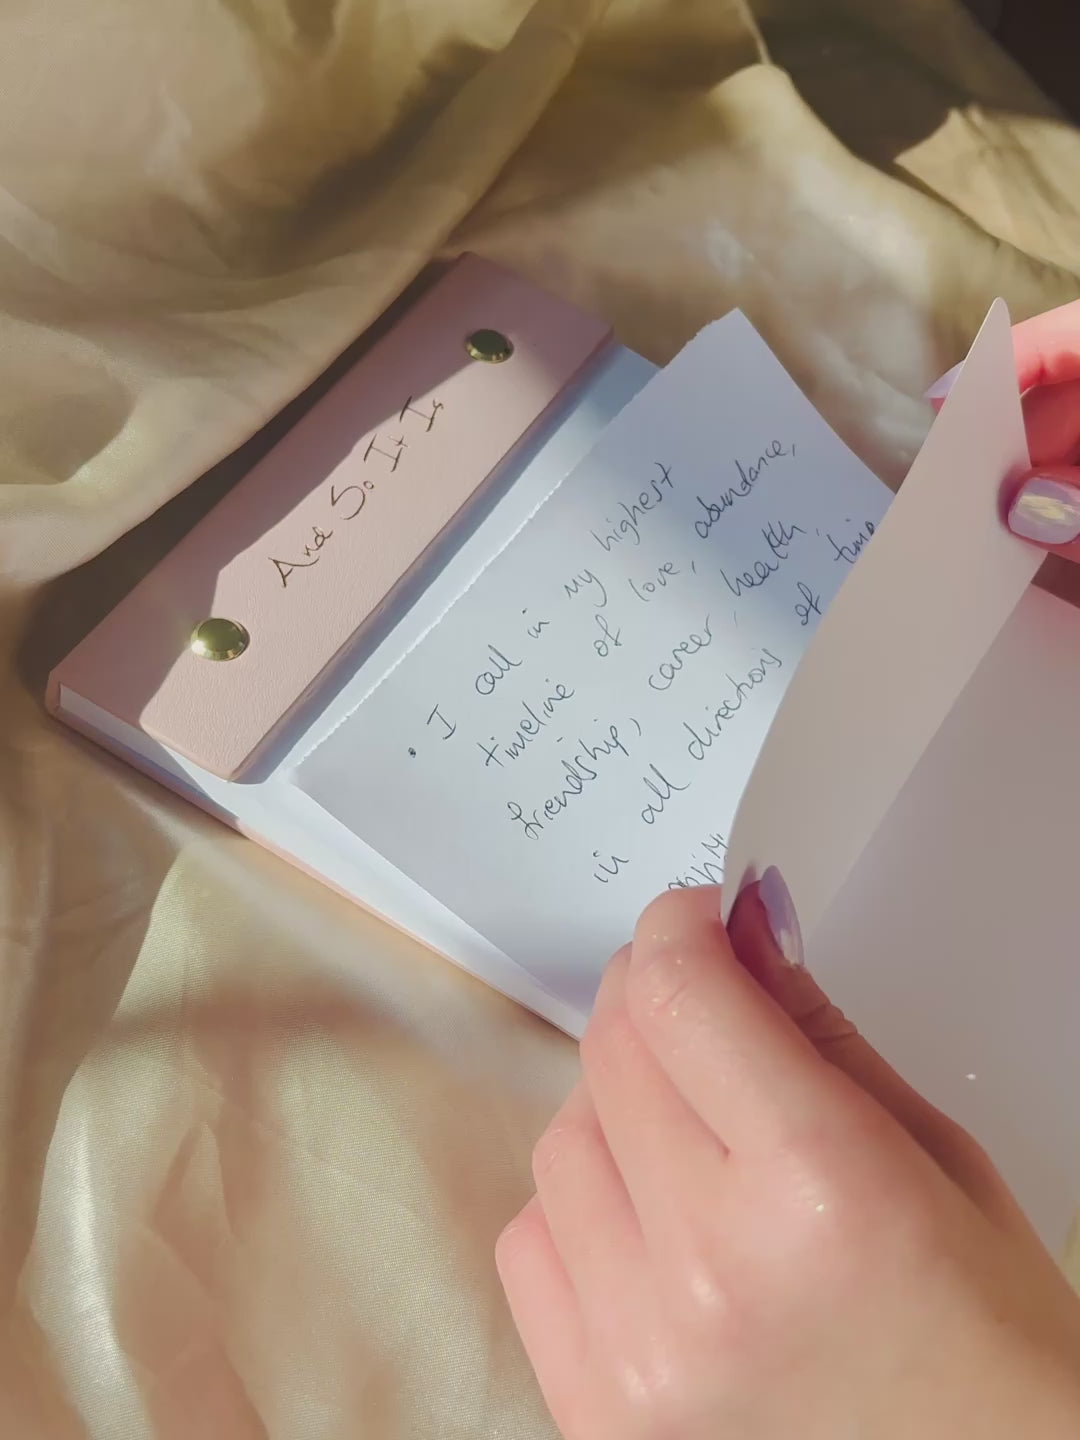 And So It Is
• I call in my highest
timeline of love, abundance,
friendship, career, health,
in all directions of time